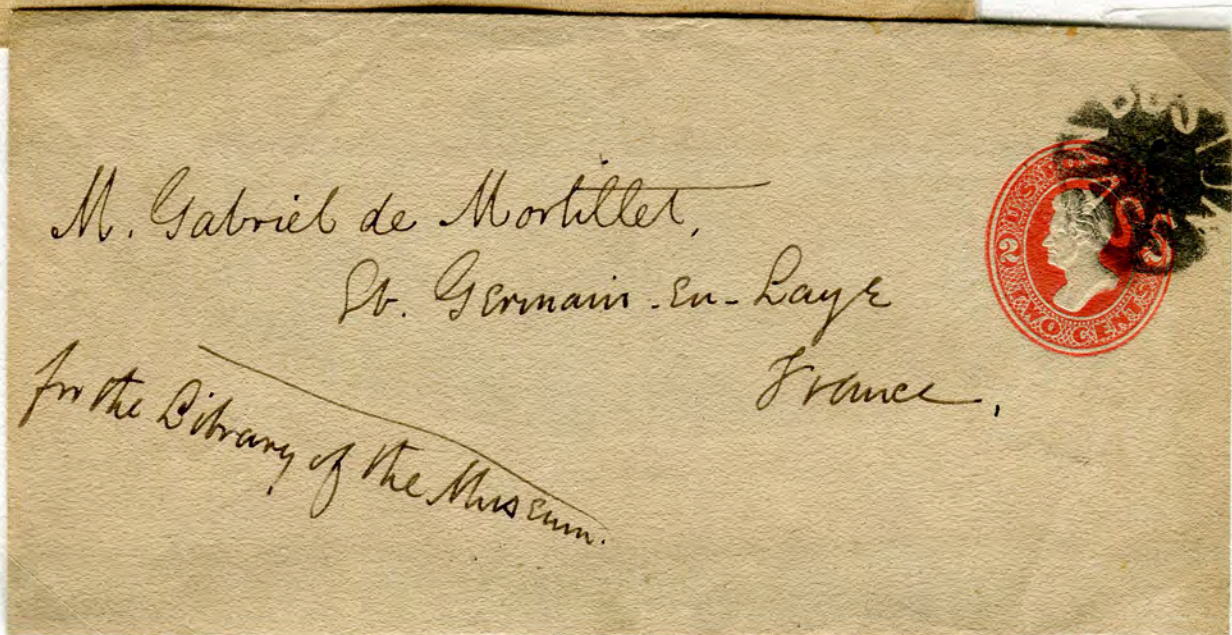 M. Gabriel de Mortillet,
St. Germain-en-Laye
France.
for the Library of the Museum.
U.S. POSTAGE
2 2
TWO CENTS